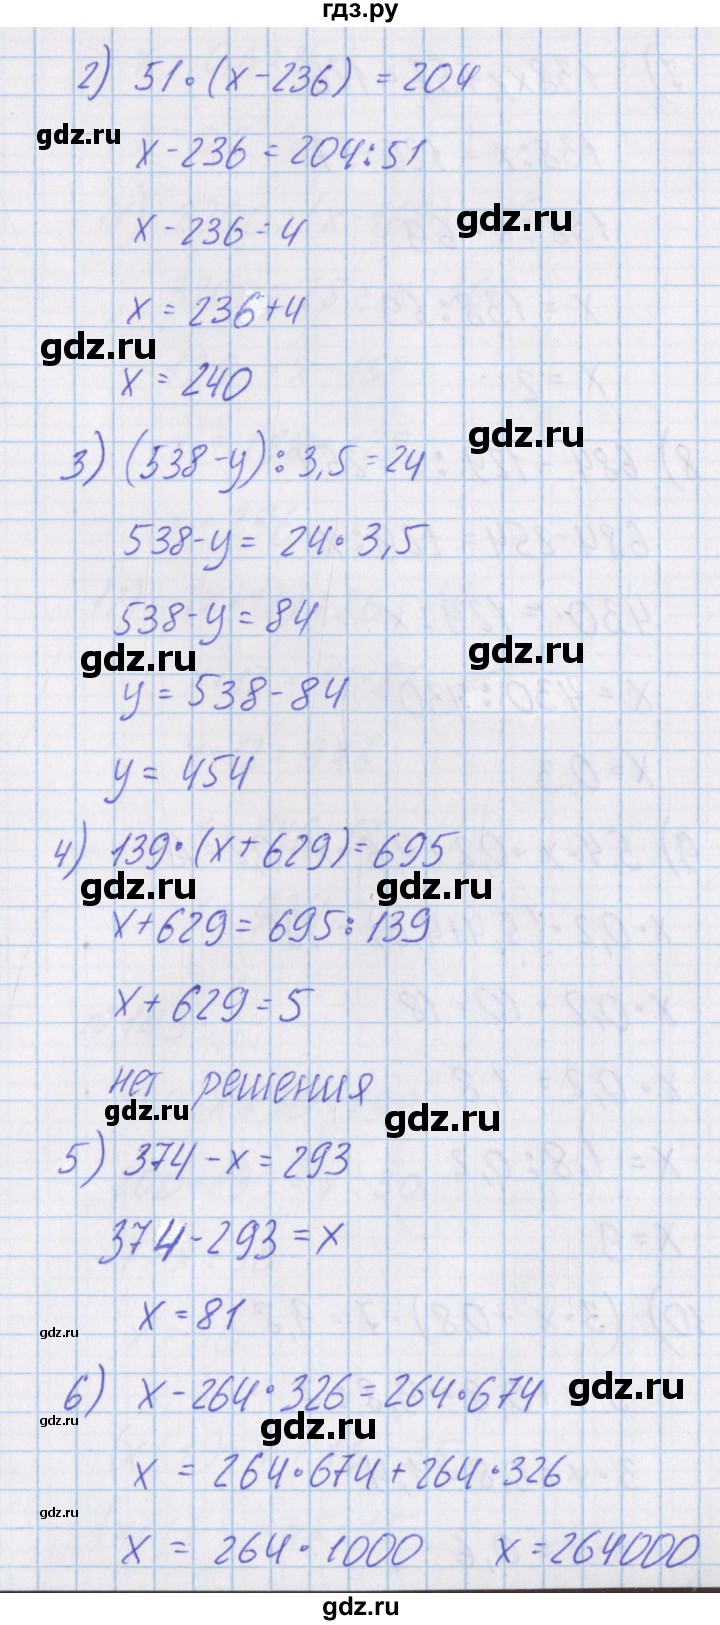 гдз.ру
2) 51·(x-236) = 204
gdz.ru
x-236 = 204:51
gdz.ru
x-236 = 4
x = 236+4
gdz.ru
x = 240
gdz.ru
3) (538-y):3,5=24
538-y = 24·3,5
538-y = 84
gdz.ru
gdz.ru
y = 538-84
y = 454
4) 139·(x+629)=695
gdz.ru
gdz.ru
x+629 = 695:139
x+629 = 5
нет решения
gdz.ru
gdz.ru
5) 374-x = 293
374-293 = x
x = 81
gdz.ru
6) x-264·326=264·674
gdz.ru
gdz.ru
gdz.ru
x = 264·674+264·326
gdz.ru
x = 264·1000 x=264000
gdz.ru